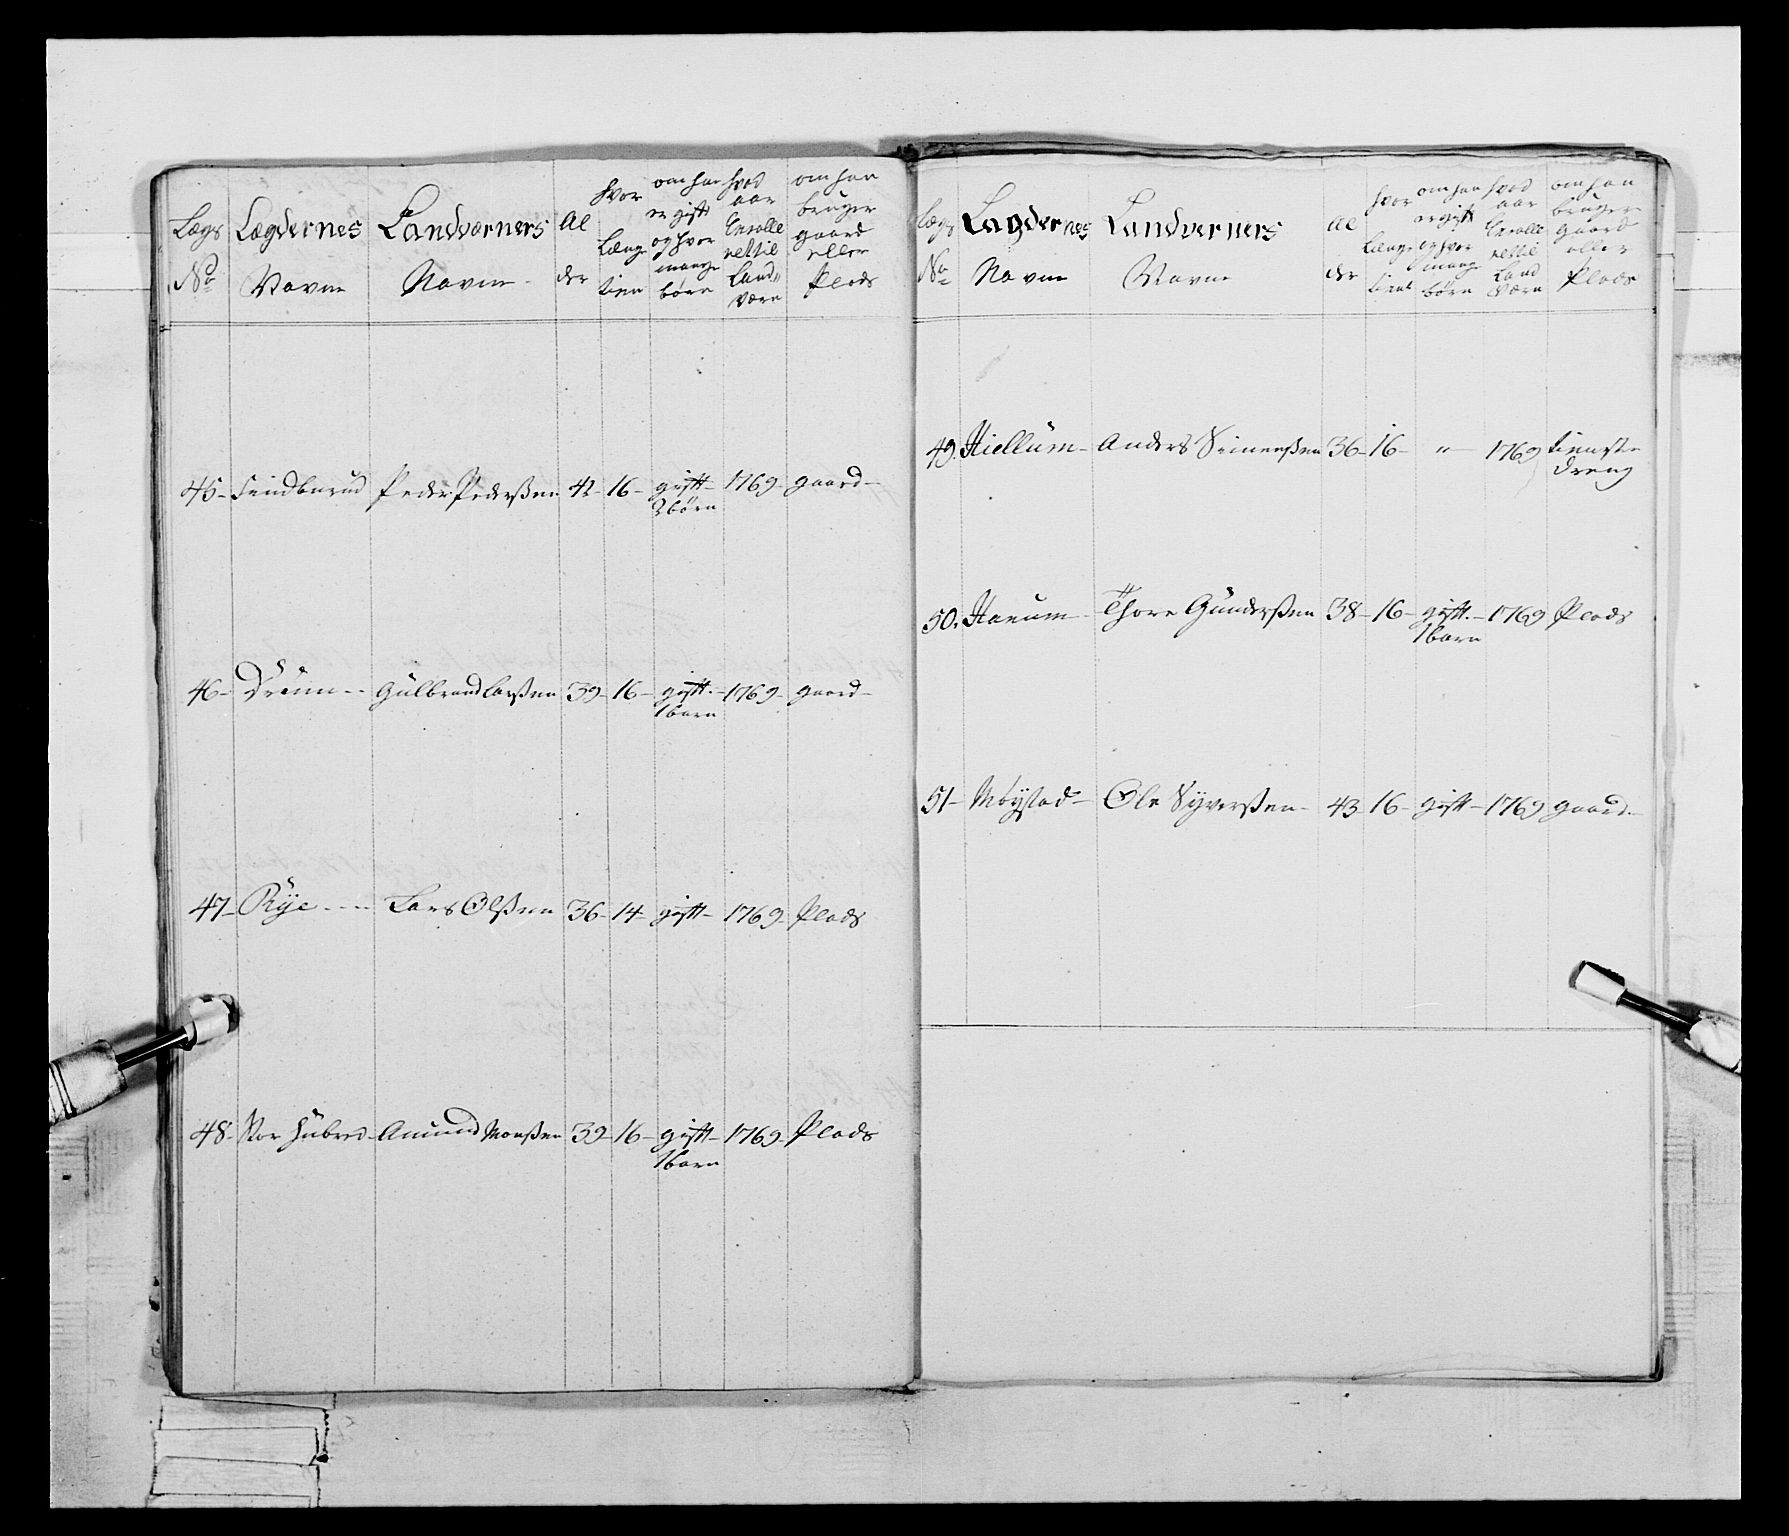 Lægs No Lægdernes Navne Landværners Navne Alder hvor Længe tien om han er gift og hvor mange børn hvad aar Enrolleret til Landværn om han bruger gaard eller Plads
45- Peder Pederßen 42- 16- gift 2 børn 1769- gaard-
46- Gulbrand Larßen 39- 16- gift 1 barn 1769- gaard-
47- Rÿe Lars Olßen 36- 14- gift- 1769- Plads
48- Amund Monßen 39- 16- gift- 1 barn 1769- Plads
Lægs No Lægdernes Navne Landværners Navne Alder hvor Længe tient om han er gift og hvor mange børn hvad aar Enrolleret til Landværn om han bruger gaard eller Plads
49. Hiellum- Anders Simenßen 36- 16- " 1769 tienste dreng
50. Thore Gunderßen 38- 16- gift.- 1 barn 1769 Plads
51- Møÿstad- Ole Sÿverßen- 43- 16- gift- 1769 gaard.